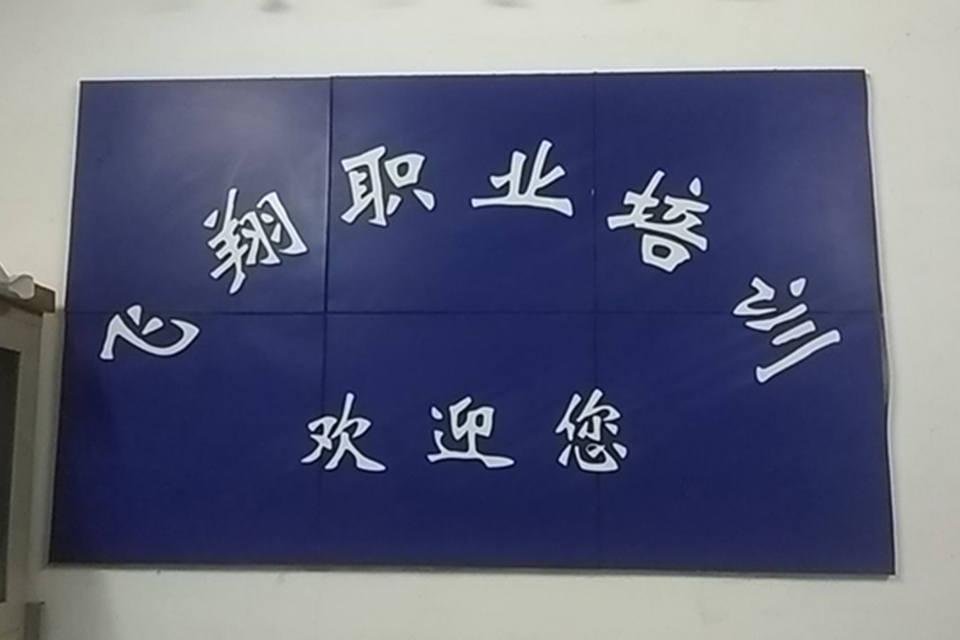 飞翔职业培训
欢迎您